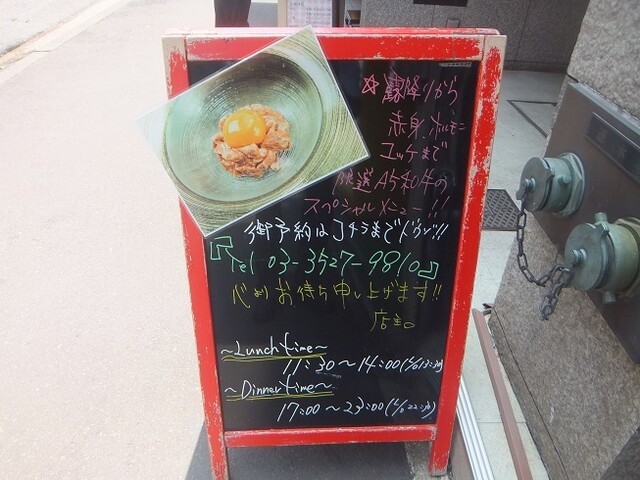 ☆霜降りから
赤身、ホルモン
ユッケまで
厳選A5和牛の
スペシャルメニュー!!
御予約はコチラまでドウゾ!!
『Tel 03-3527-9810』
心よりお待ち申し上げます!!
店主。
~Lunch time~
11:30~14:00(L/O 13:30)
~Dinner time~
17:00~23:00(L/O 22:30)